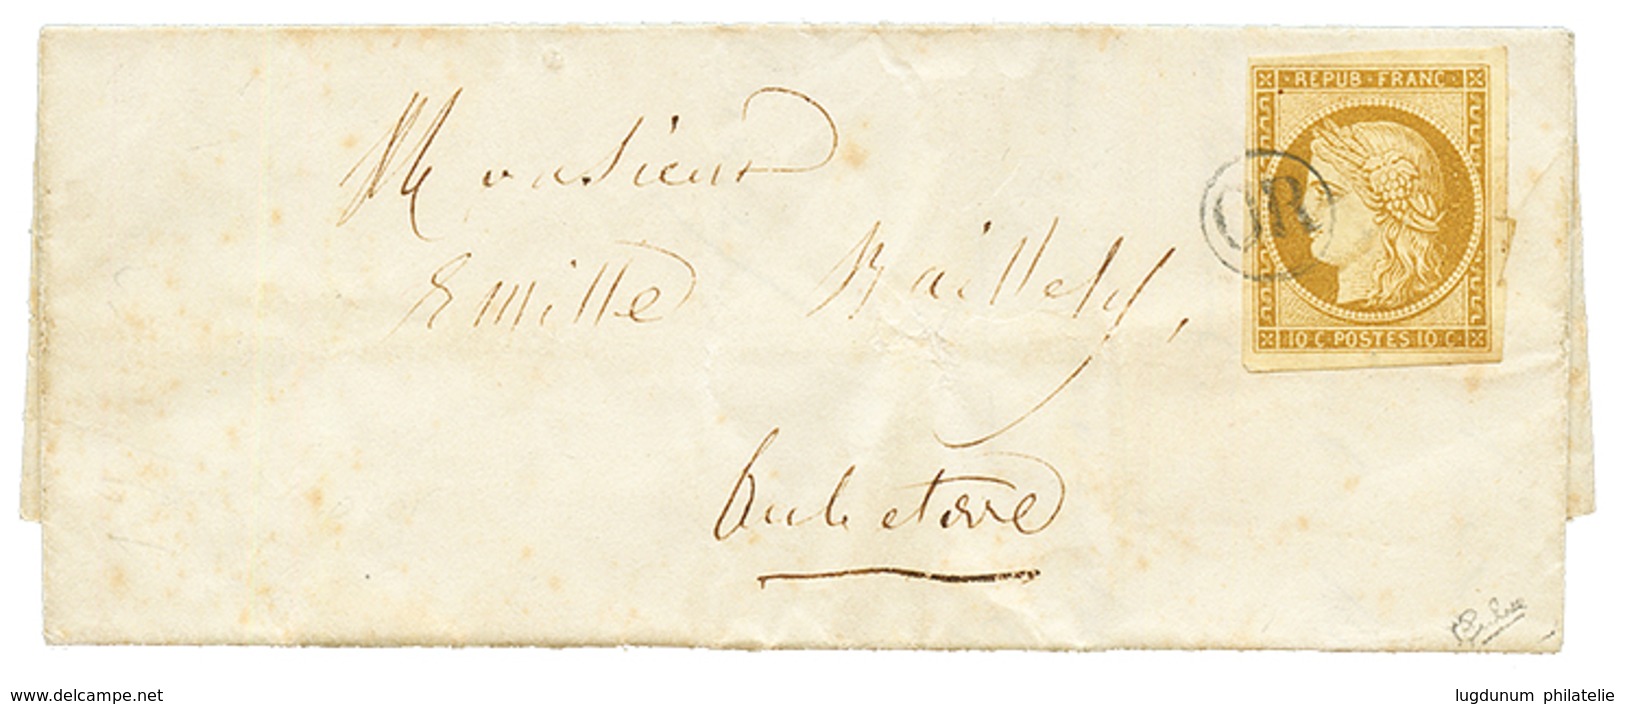 REPUB · FRANC ·
OR
10 C · POSTES 10 C ·
Monsieur
Emille
Aubeterre
www.delcampe.net
lugdunum philatelie